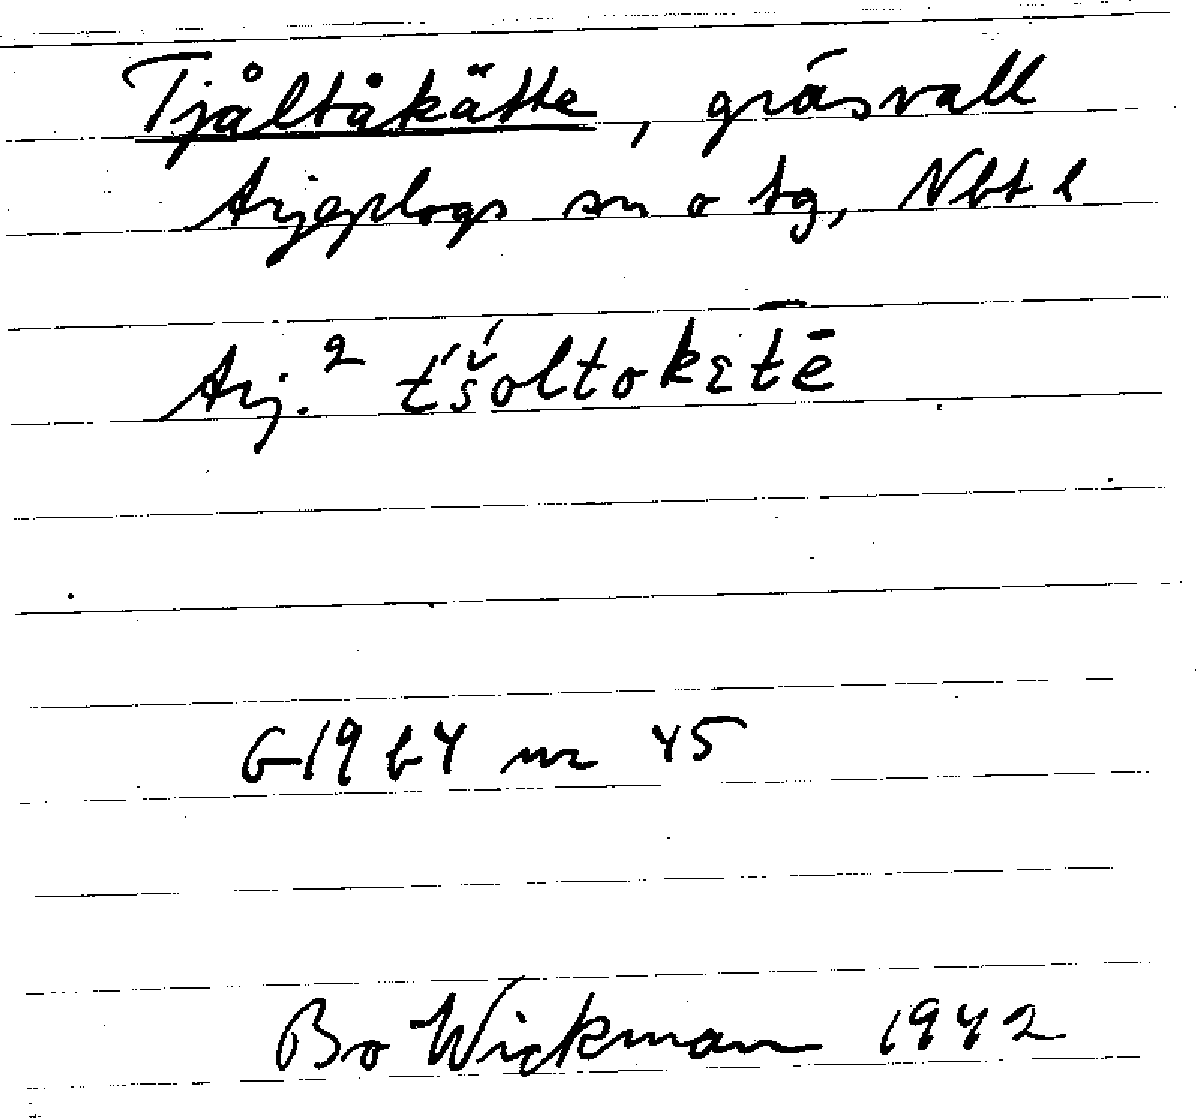 Tjåltåkätte, gräsvall
Arjeplogs sn o tg, Nbt l
Arj.² t́š́oltokᴇt̄ē
G1964 nr 45
Bo Wickman 1942